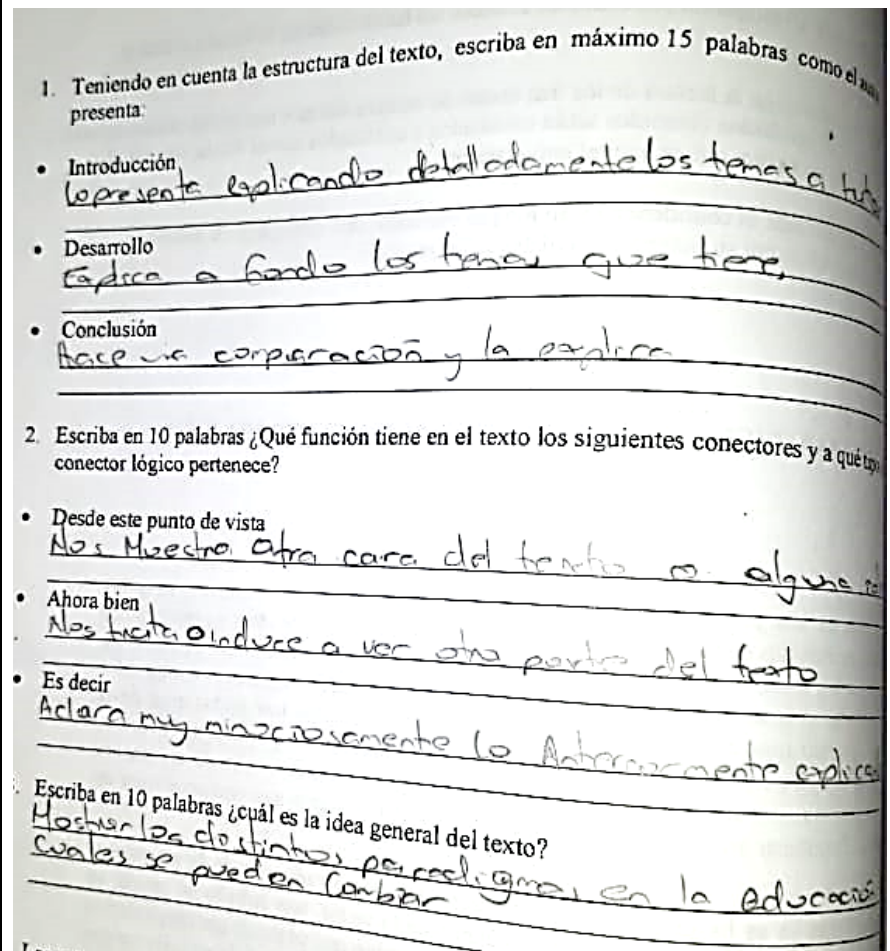 1. Teniendo en cuenta la estructura del texto, escriba en máximo 15 palabras como el
presenta:
• Introducción
lo presenta explicando detalladamente los temas a
• Desarrollo
Explica a fondo los temas que tiene,
• Conclusión
hace una comparación y la explica
2. Escriba en 10 palabras ¿Qué función tiene en el texto los siguientes conectores y a qué tipo
conector lógico pertenece?
• Desde este punto de vista
Nos Muestra otra cara del texto o alguna
• Ahora bien
Nos incita o induce a ver otra parte del texto
• Es decir
Aclara muy minociosamente lo Anteriormente explica
. Escriba en 10 palabras ¿cuál es la idea general del texto?
Mostrar los distintos paradigmas en la educació
Cuales se pueden Cambiar